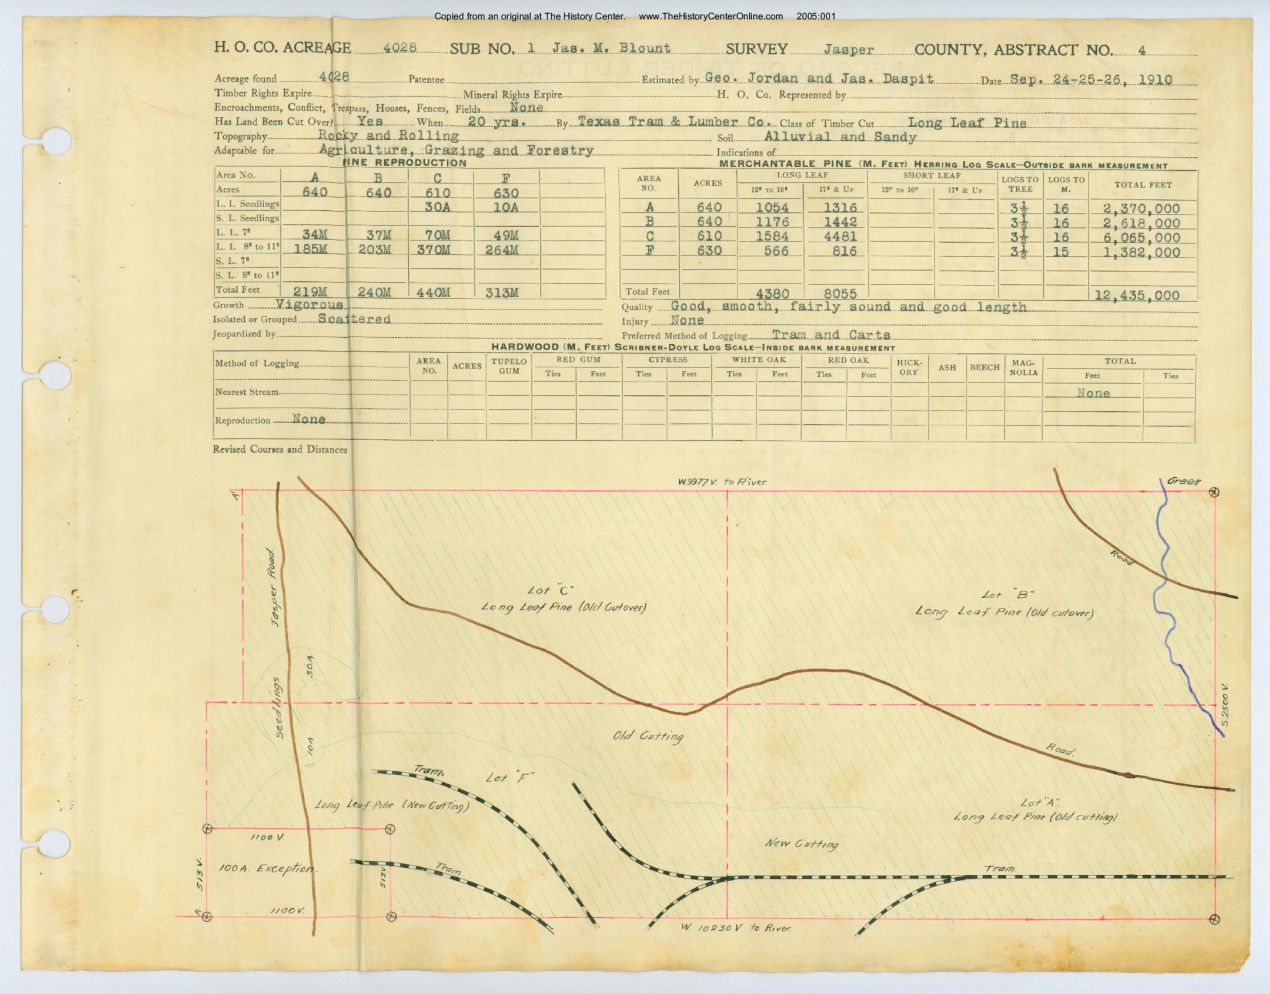 Copied from an original at The History Center. www.TheHistoryCenterOnline.com 2005:001
H. O. CO. ACREAGE 4028 SUB NO. 1 Jas. M. Blount SURVEY Jasper COUNTY, ABSTRACT NO. 4
Acreage found 4028 Patentee Estimated by Geo. Jordan and Jas. Daspit Date Sep. 24-25-26, 1910
Timber Rights Expire Mineral Rights Expire H. O. Co. Represented by
Encroachments, Conflict, Trespass, Houses, Fences, Fields None
Has Land Been Cut Over? Yes When 20 yrs. By Texas Tram & Lumber Co. Class of Timber Cut Long Leaf Pine
Topography Rocky and Rolling Soil Alluvial and Sandy
Adaptable for Agriculture, Grazing and Forestry Indications of
PINE REPRODUCTION
Area No. A B C F
Acres 640 640 610 630
L. L. Seedlings 30A 10A
S. L. Seedlings
L. L. 7" 34M 37M 70M 49M
L. L. 8" to 11" 185M 203M 370M 264M
S. L. 7"
S. L. 8" to 11"
Total Feet 219M 240M 440M 313M
Growth Vigorous
Isolated or Grouped Scattered
Jeopardized by
MERCHANTABLE PINE (M. FEET) HERRING LOG SCALE—OUTSIDE BARK MEASUREMENT
AREA NO. ACRES LONG LEAF SHORT LEAF LOGS TO TREE LOGS TO M. TOTAL FEET
12" TO 16" 17" & UP 12" TO 16" 17" & UP
A 640 1054 1316 3½ 16 2,370,000
B 640 1176 1442 3½ 16 2,618,000
C 610 1584 4481 3½ 16 6,065,000
F 630 566 816 3½ 15 1,382,000
Total Feet 4380 8055 12,435,000
Quality Good, smooth, fairly sound and good length
Injury None
Preferred Method of Logging Tram and Carts
HARDWOOD (M. FEET) SCRIBNER-DOYLE LOG SCALE—INSIDE BARK MEASUREMENT
Method of Logging AREA NO. ACRES TUPELO GUM RED GUM CYPRESS WHITE OAK RED OAK HICKORY ASH BEECH MAGNOLIA TOTAL
Ties Feet Ties Feet Ties Feet Ties Feet Feet Ties
Nearest Stream None
Reproduction None
Revised Courses and Distances
W 9977 V. to River.
Creek
Jasper Road
Road
Lot "C"
Long Leaf Pine (Old Cutover)
Lot "B"
Long Leaf Pine (Old cutover)
30A.
Seedlings
S. 2500 V.
10A
Old Cutting
Road.
Tram.
Lot "F"
Long Leaf Pine (New Cutting)
Lot "A".
Long Leaf Pine (Old cutting)
1100 V.
New Cutting
513 V.
100 A. Exception.
513 V.
Tram
Tram.
1100 V.
W 10230 V to River.